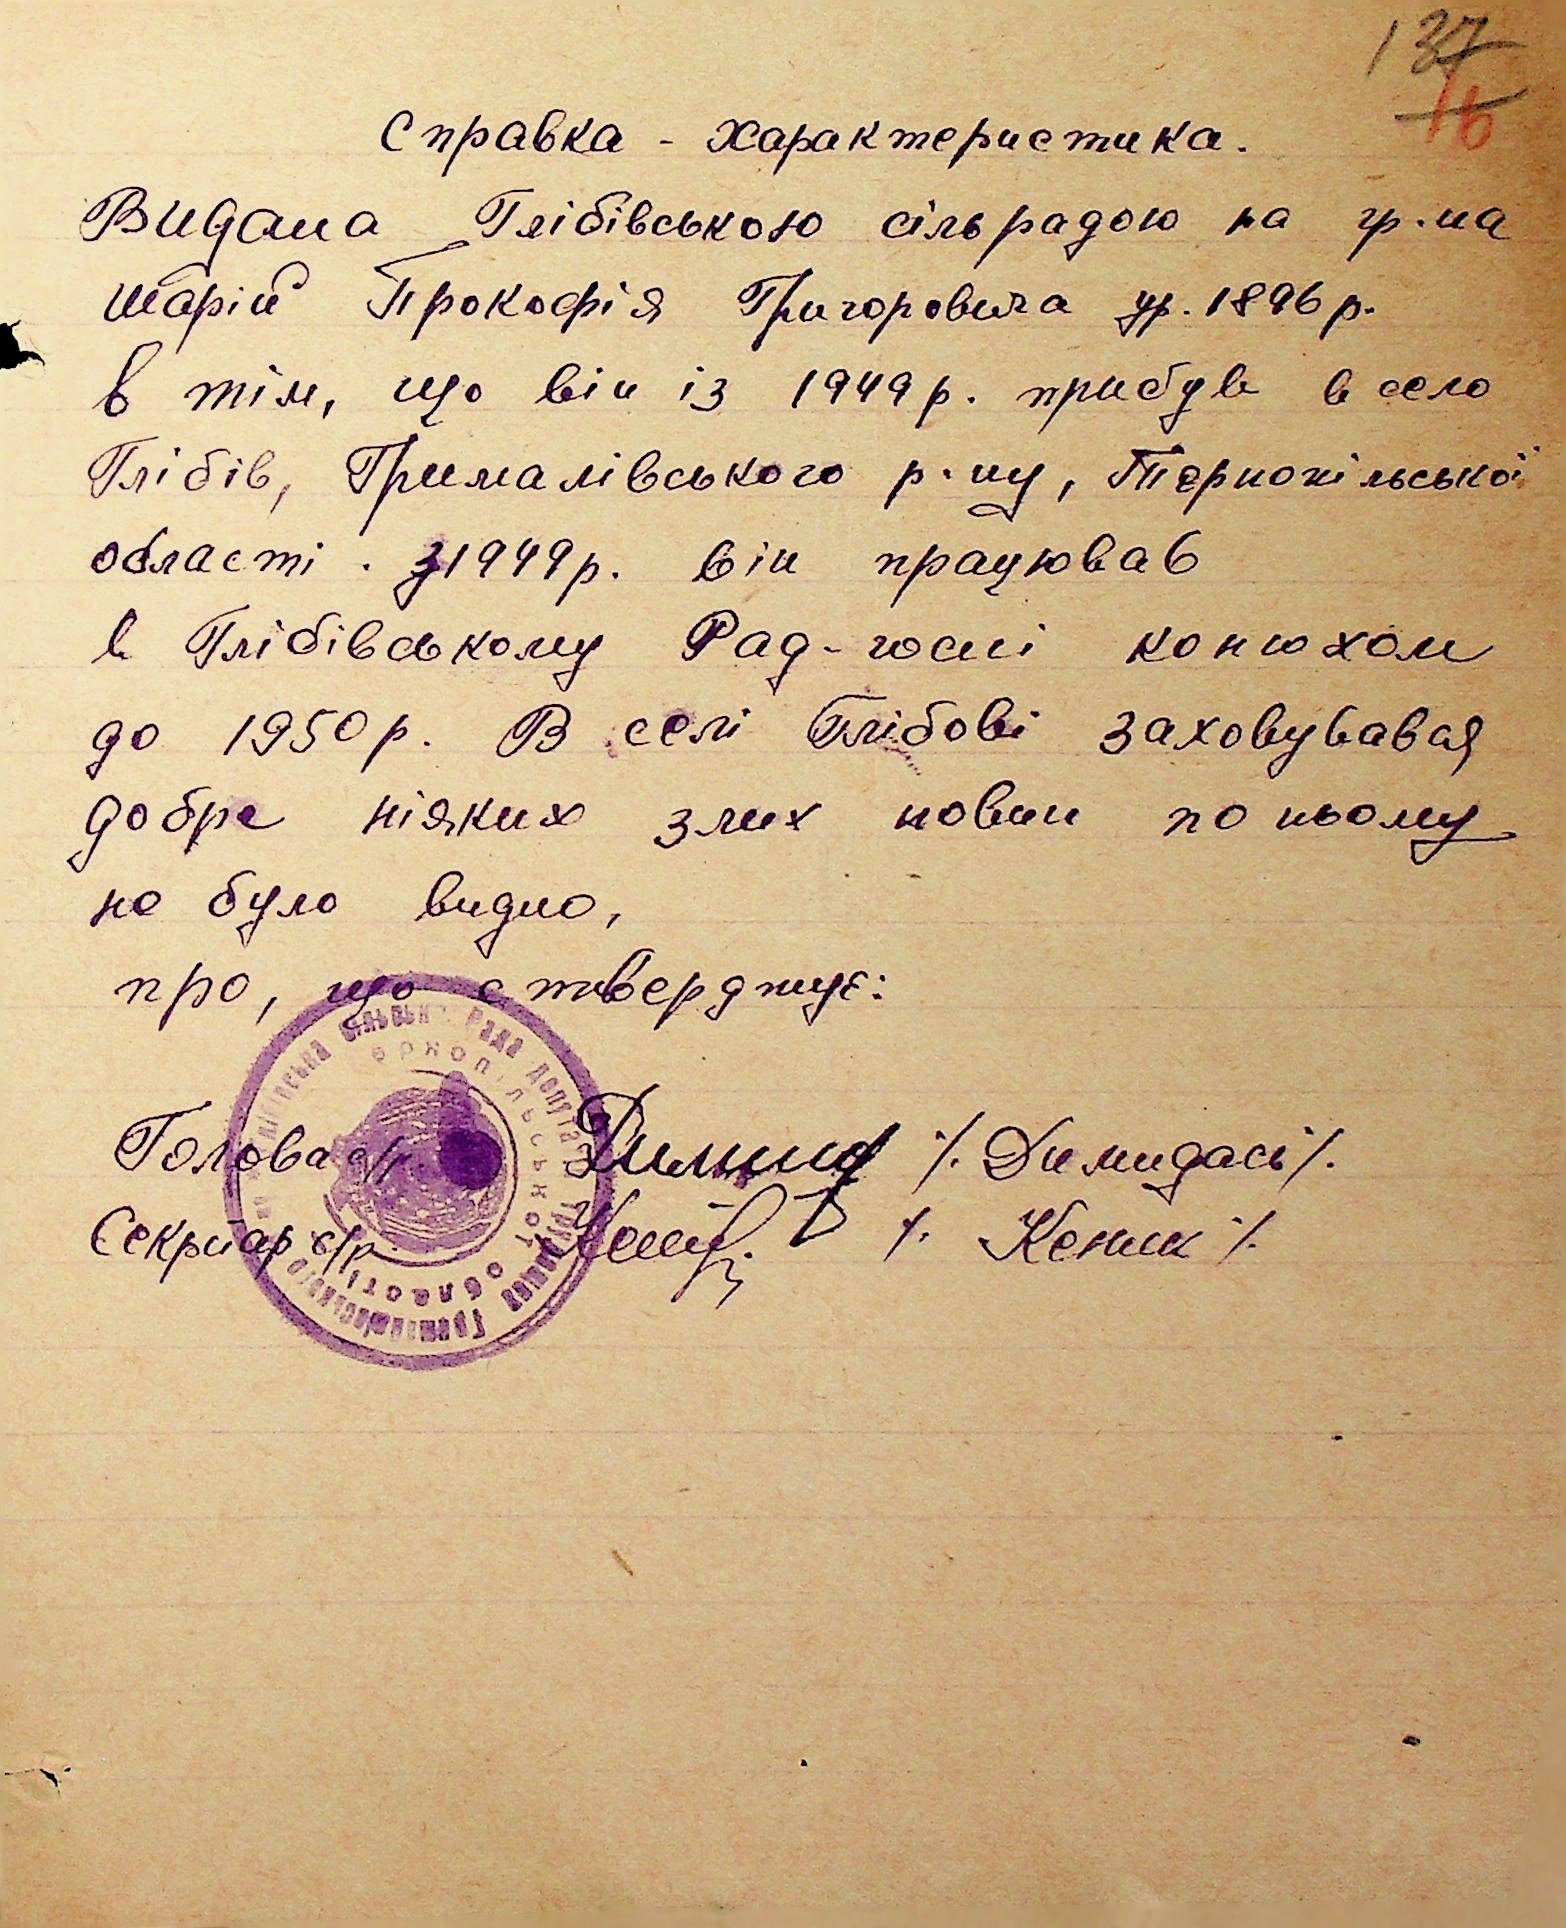 137
16
Справка - характеристика.
Видана Глібівською сільрадою на гр-на
Шарій Прокофія Григоровича ур. 1896 р.
в тім, що він із 1949 р. прибув в село
Глібів, Грималівського р-ну, Тернопільської
області. З 1949 р. він працював
в Глібівському Рад-госпі конюхом
до 1950 р. В селі Глібові заховувався
добре ніяких злих новин по ньому
не було видно,
про, що стверджує:
Голова с/р. /. Димидась /.
Секритар с/р. /. Кеник /.
рада депутатів трудящих Грималівського
Тернопільської області